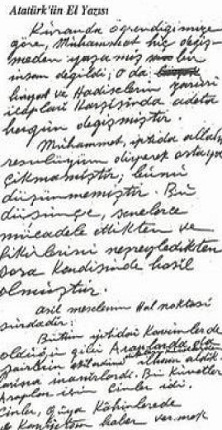 Atatürk'ün El Yazısı
Kuranda öğrendiğimize
göre, Muhammet hiç değiş-
meden yaşamış bir
insan değildi; o da
hayat ve Hadiselerin
icapları karşısında adeta
hergün değişmiştir.
Muhammet, iptida allah
resulüyüm diyerek ortaya
çıkmamıştır; bunu
düşünmemiştir. Bu
düşünçe, senelerce
mücadele ettikten ve
fikirlerini neşreyledikten
sora Kendisinde hasıl
olmuştur.
asıl meselenin Hal noktası
şurdadır:
Bütün iptidai Kavimlerde
olduğu gibi Araplarda da
şairlerin ilham aldık-
larına inanırlardı. Bu Kuvvetler
Araplar için Cinler idi.
Cinler, güya Kâhinlerede
haber vermek